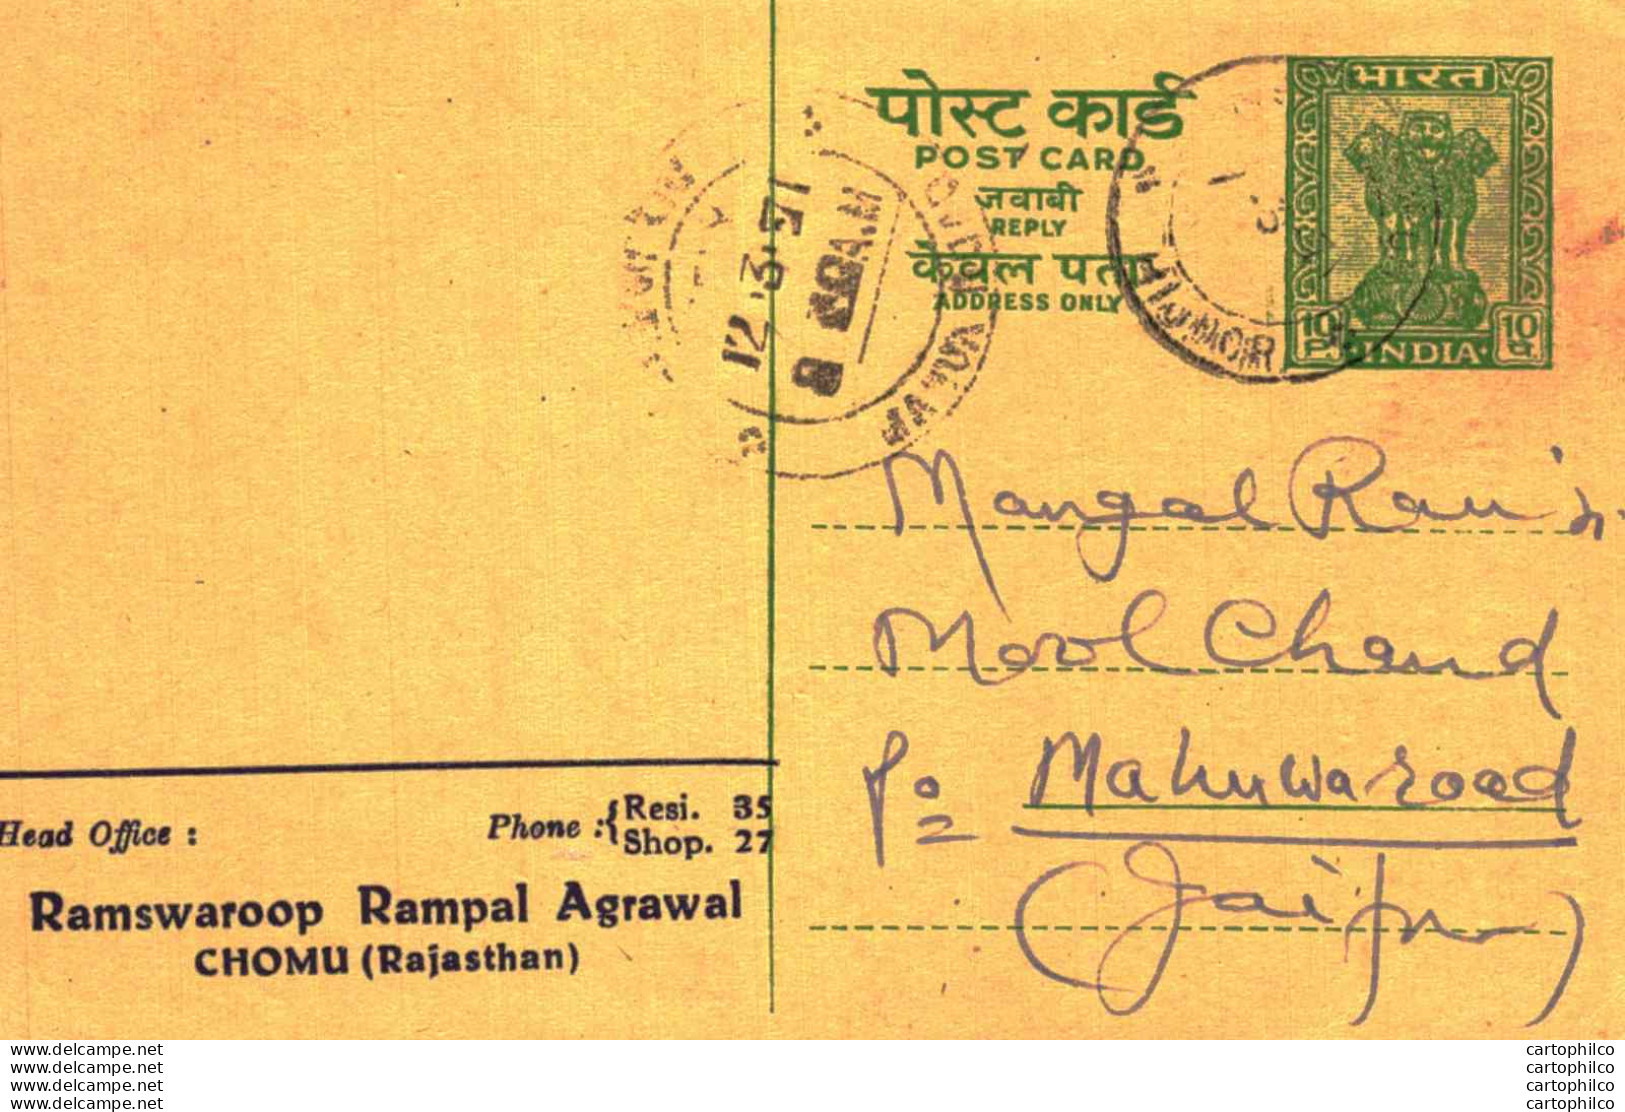 पोस्ट कार्ड
POST CARD
जवाबी
REPLY
केवल पता
ADDRESS ONLY
भारत
10 10
INDIA
12.3.71
BIJNOR
Mangal Ram
Mool Chand
Po Mahuwa road
(Jaipur)
Head Office : Phone :{ Resi. 35
Shop. 27
Ramswaroop Rampal Agrawal
CHOMU (Rajasthan)
www.delcampe.net cartophilco
www.delcampe.net cartophilco
www.delcampe.net cartophilco
www.delcampe.net cartophilco